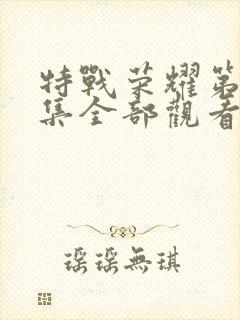 特戰荣耀第
集全部觀看
瑶瑶無琪